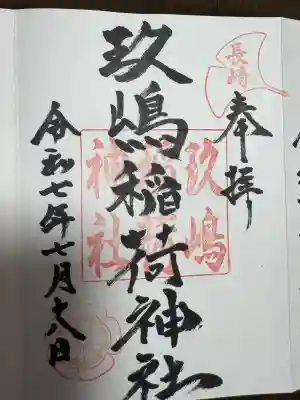 長崎
奉拝
玖嶋稲荷神社
玖嶋
稲荷
神社
令和七年七月十八日